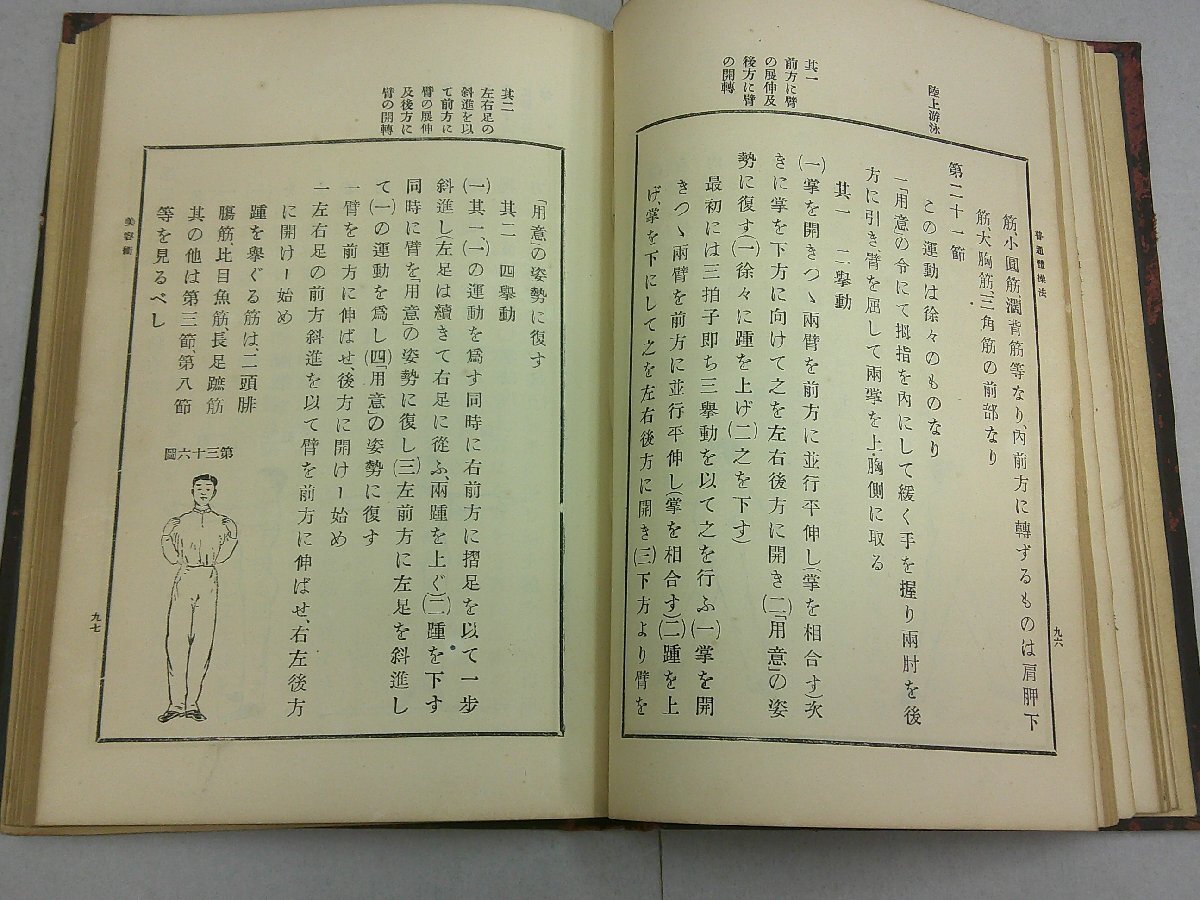 普通體操法
九六
陸上游泳
其一
前方に臂
の展伸及
後方に臂
の開轉
筋、小圓筋濶背筋等なり、內前方に轉ずるものは肩胛下
筋、大胸筋三角筋の前部なり
第二十一節
この運動は徐々のものなり
一「用意の令にて拇指を內にして緩く手を握り兩肘を後
方に引き臂を屈して兩掌を上胸側に取る
其一 二擧動
(一)掌を開きつゝ兩臂を前方に並行平伸し(掌を相合す)次
きに掌を下方に向けて之を左右後方に開き(二)「用意」の姿
勢に復す(一)徐々に踵を上げ(二)之を下す)
最初には三拍子即ち三擧動を以て之を行ふ(一)掌を開
きつゝ兩臂を前方に並行平伸し(掌を相合す)(二)踵を上
げ、掌を下にして之を左右後方に開き(三)下方より臂を
其二
左右足の
斜進を以
て前方に
臂の展伸
及後方に
臂の開轉
「用意の姿勢に復す
其二 四擧動
(一)其一(一)の運動を爲す同時に右前方に摺足を以て一步
斜進し(左足は續きて右足に從ふ、兩踵を上ぐ(二)踵を下す
同時に臂を用意」の姿勢に復し(三)左前方に左足を斜進し
て(一)の運動を爲し(四)「用意」の姿勢に復す
一臂を前方に伸ばせ、後方に開けー始め
一左右足の前方斜進を以て臂を前方に伸ばせ、右左後方
に開けー始め
踵を擧ぐる筋は、二頭腓
膓筋、比目魚筋、長足蹠筋
其の他は第三節第八節
等を見るべし
第三十六圖
美容術
九七